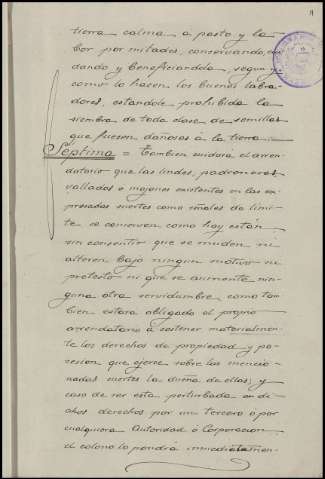 tierra calma a pasto y la-
bor por mitades, conservando, cui-
dando y beneficiandola, segun y
como lo hacen los buenos labra-
dores, estandole prohibida la
siembra de toda clase de semillas
que fuesen dañosas á la tierra
Séptima = Tambien cuidará el arren-
datario que las lindes, padrones,
vallados o mojones existentes en las ex-
presadas suertes como señales de lími-
te se conserven como hoy están
sin consentir que se muden ni
alteren bajo ningun motivo ni
pretesto ni que se aumente nin-
guna otra servidumbre, como tam-
bien estara obligado el propio
arrendatario á sostener materialmen-
te los derechos de propiedad y po-
sesion que ejerce sobre las mencio-
nadas suertes la dueña de ellas; y
caso de ser esta perturbada en di-
chos derechos por un tercero o por
cualquiera Autoridad ó Corporacion
el colono lo pondrá inmediatamen-